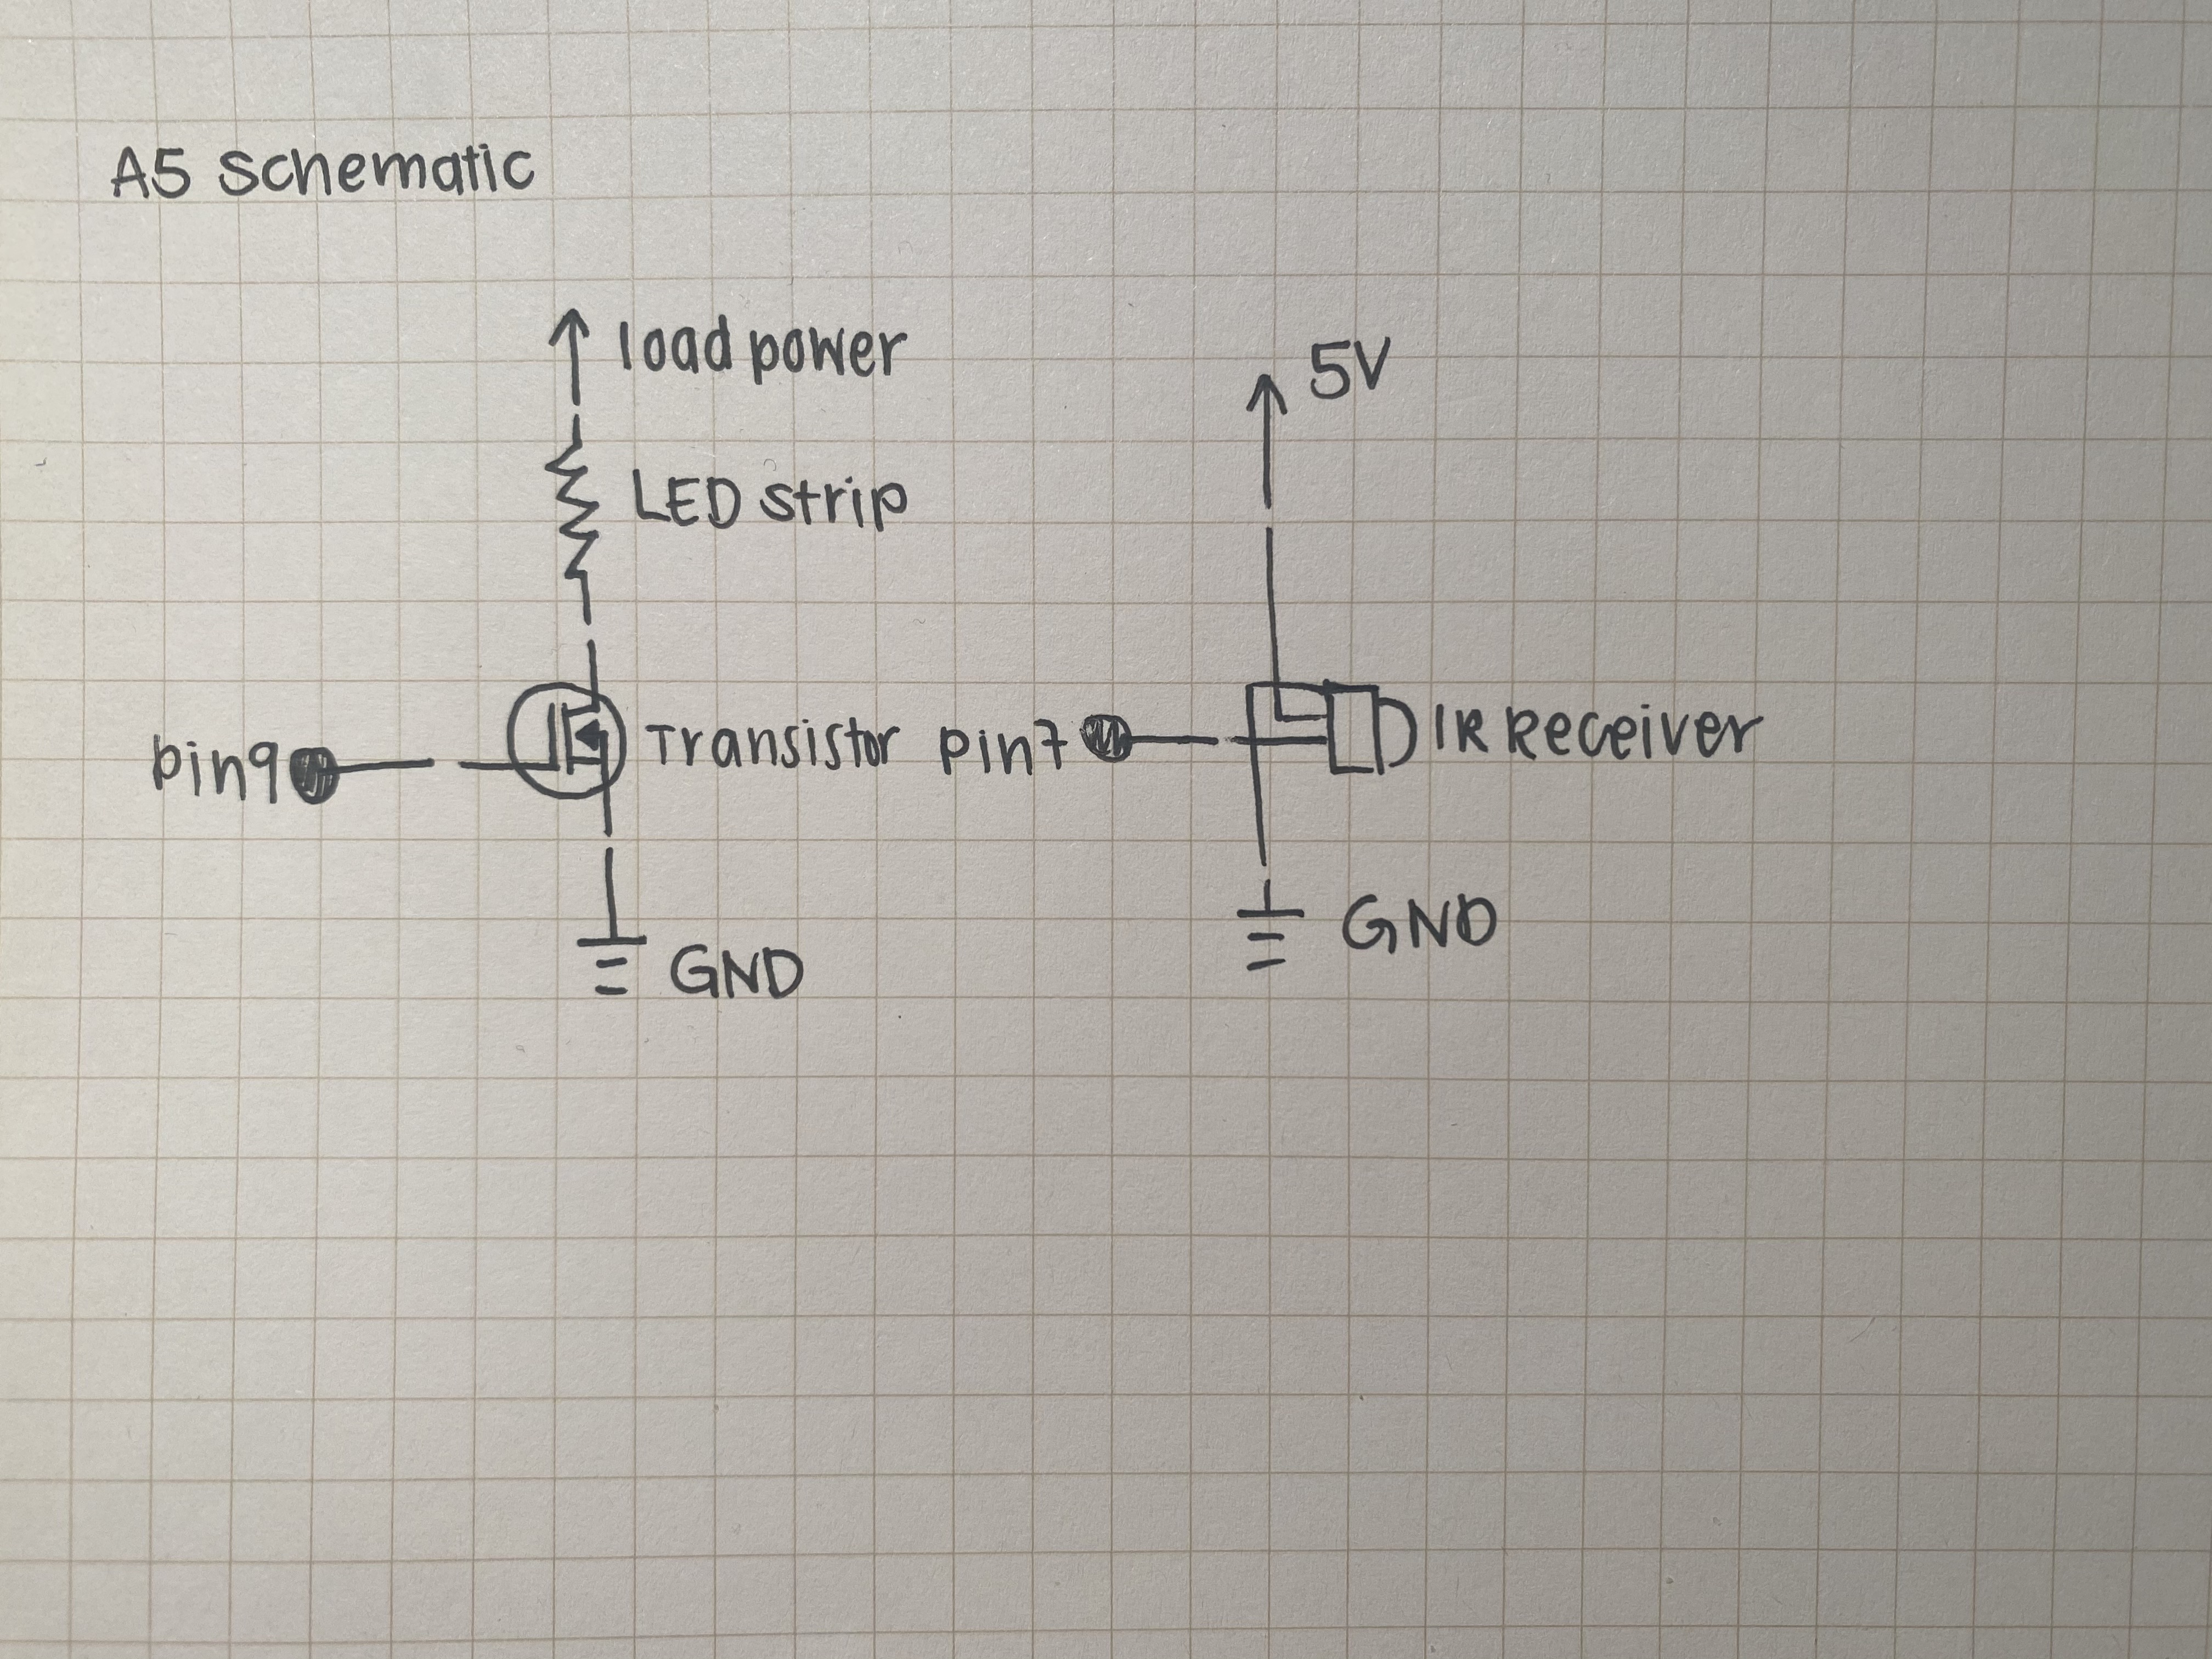 A5 Schematic
load power
5V
LED strip
pin9
Transistor
pin7
IR Receiver
GND
GND